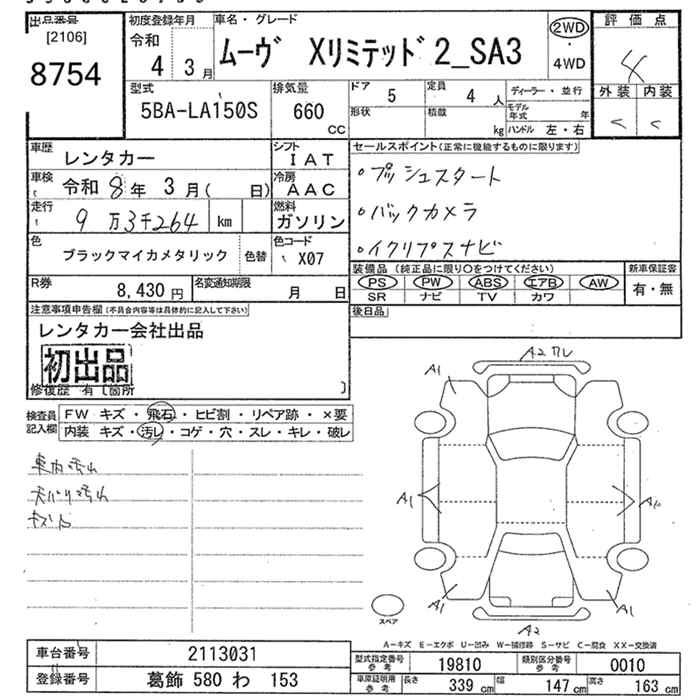 出品番号
[2106]
8754
初度登録年月
令和
4 3月
車名・グレード
ムーヴ Xリミテッド2_SA3
2WD
・
4WD
評価点
4
外装 内装
C C
型式
5BA-LA150S
排気量
660
CC
ドア
5
定員
4 人
形状
積載
kg
ディーラー・並行
モデル年式 年
ハンドル 左・右
車歴 レンタカー
シフト IAT
車検 令和 8年 3月( 日)
冷房 AAC
走行 9万3千264 km
燃料 ガソリン
色 ブラックマイカメタリック 色替
色コード X07
R券 8,430円
名変通知期限 月 日
セールスポイント(正常に機能するものに限ります)
・プッシュスタート
・バックカメラ
・イクリプスナビ
装備品 (純正品に限り○をつけてください)
PS PW ABS エアB AW
SR ナビ TV カワ
新車保証書
有・無
後日品
注意事項申告欄(不具合内容等は具体的に記入して下さい)
レンタカー会社出品
初出品
修復歴 有〔箇所 〕
検査員記入欄
FW キズ・飛石・ヒビ割・リペア跡・×要
内装 キズ・汚レ・コゲ・穴・スレ・キレ・破レ
車内汚れ
天バリ汚れ
A2 ワレ
A1
A1
A1
A1
A1
A2
スペア
A-キズ E-エクボ U-凹み W-補修跡 S-サビ C-腐食 XX-交換済
車台番号 2113031
登録番号 葛飾 580 わ 153
型式指定番号参考 19810
類別区分番号参考 0010
車庫証明用参考 長さ 339cm 幅 147cm 高さ 163cm